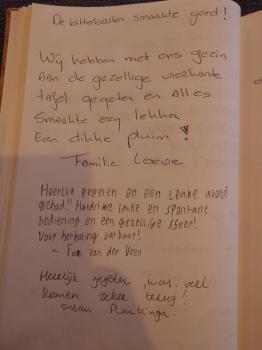 De bitterballen smaakte goed!
Wij hebben met ons gezin
aan de gezellige vierkante
tafel gegeten en alles
smaakte erg lekker
Een dikke pluim!
Familie Loewe
Heerlijk gegeten en een leuke avond
gehad!! Hardstikke leuke en spontane
bediening en een gezellige sfeer!
Voor herhaling vatbaar!
~ Fam van der Veen
Heerlijk gegeten, was veel.
komen zeker terug!
Susan Plantinga.